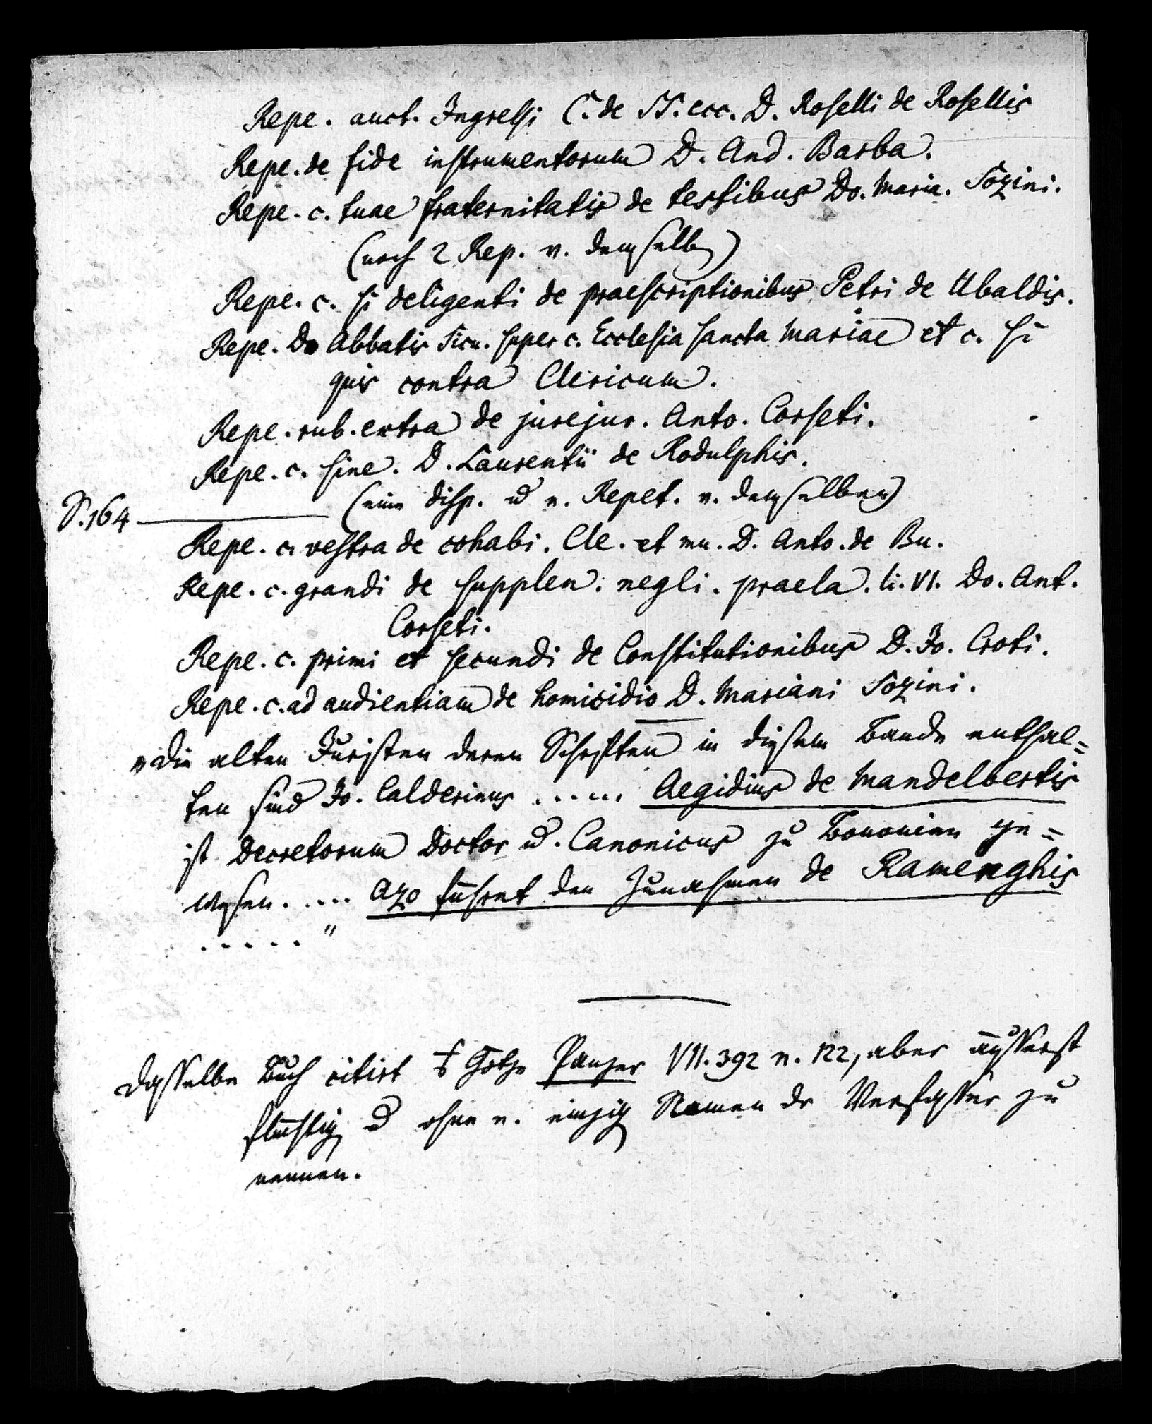 Repe. auct. Ingressi C. de SS. ecc. D. Roselli de Rosellis
Repe. de fide instrumentorum D. And. Barba.
Repe. c. tuae fraternitatis de testibus Do. Maria. Sozini.
(noch 2 Rep. v. demselben)
Repe. c. si deligenti de praescriptionibus Petri de Ubaldis.
Repe. Do Abbatis Sicu. super c. Ecclesia sancta Mariae et c. si
quis contra Clericum.
Repe. rub. extra de jurejur. Anto. Corseti.
Repe. c. sine. D. Laurentii de Rodulphis.
(eine disp. u. e. Repet. v. demselben)
S. 164
Repe. c. vestra de cohabi. Cle. et mu. D. Anto. de Bu.
Repe. c. grandi de supplen. negli. praela. li. VI. Do. Ant.
Corseti.
Repe. c. primi et secundi de Constitutionibus D. Jo. Croti.
Repe. c. ad audientiam de homicidio D. Mariani Sozini.
"Die alten Juristen deren Schriften in diesem Bande enthal=
ten sind Jo. Calderinus ..... Aegidius de Mandelbertis
ist Decretorum Doctor u. Canonicus zu Bononien ge=
wesen. .... Azo führet den Zunahmen de Ramenghis
. . . . . "
Dasselbe Buch citirt Panzer VII. 392 n. 122, aber äusserst
flüchtig u ohne e. einzig Namen dr Verfasser zu
nennen.